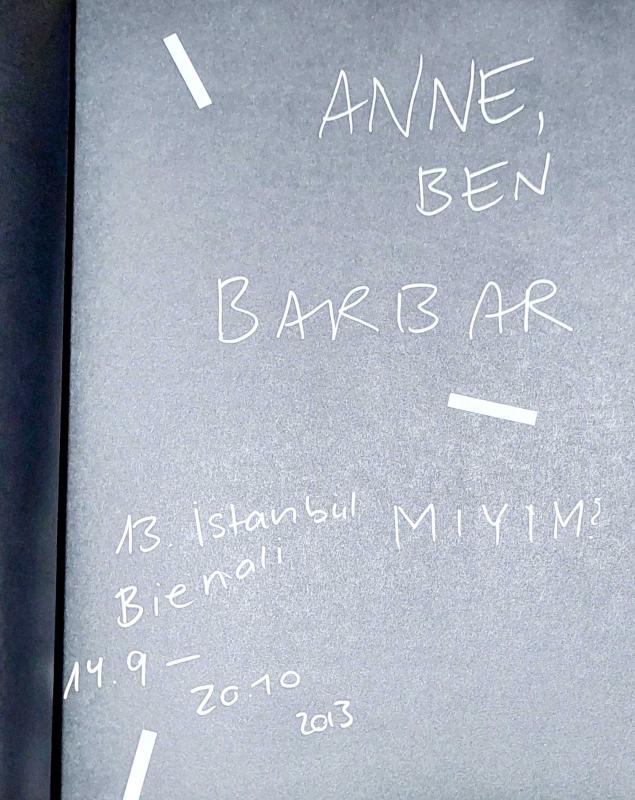 ANNE,
BEN
BARBAR
MIYIM?
13. İstanbul
Bienali
14.9 —
20.10
2013